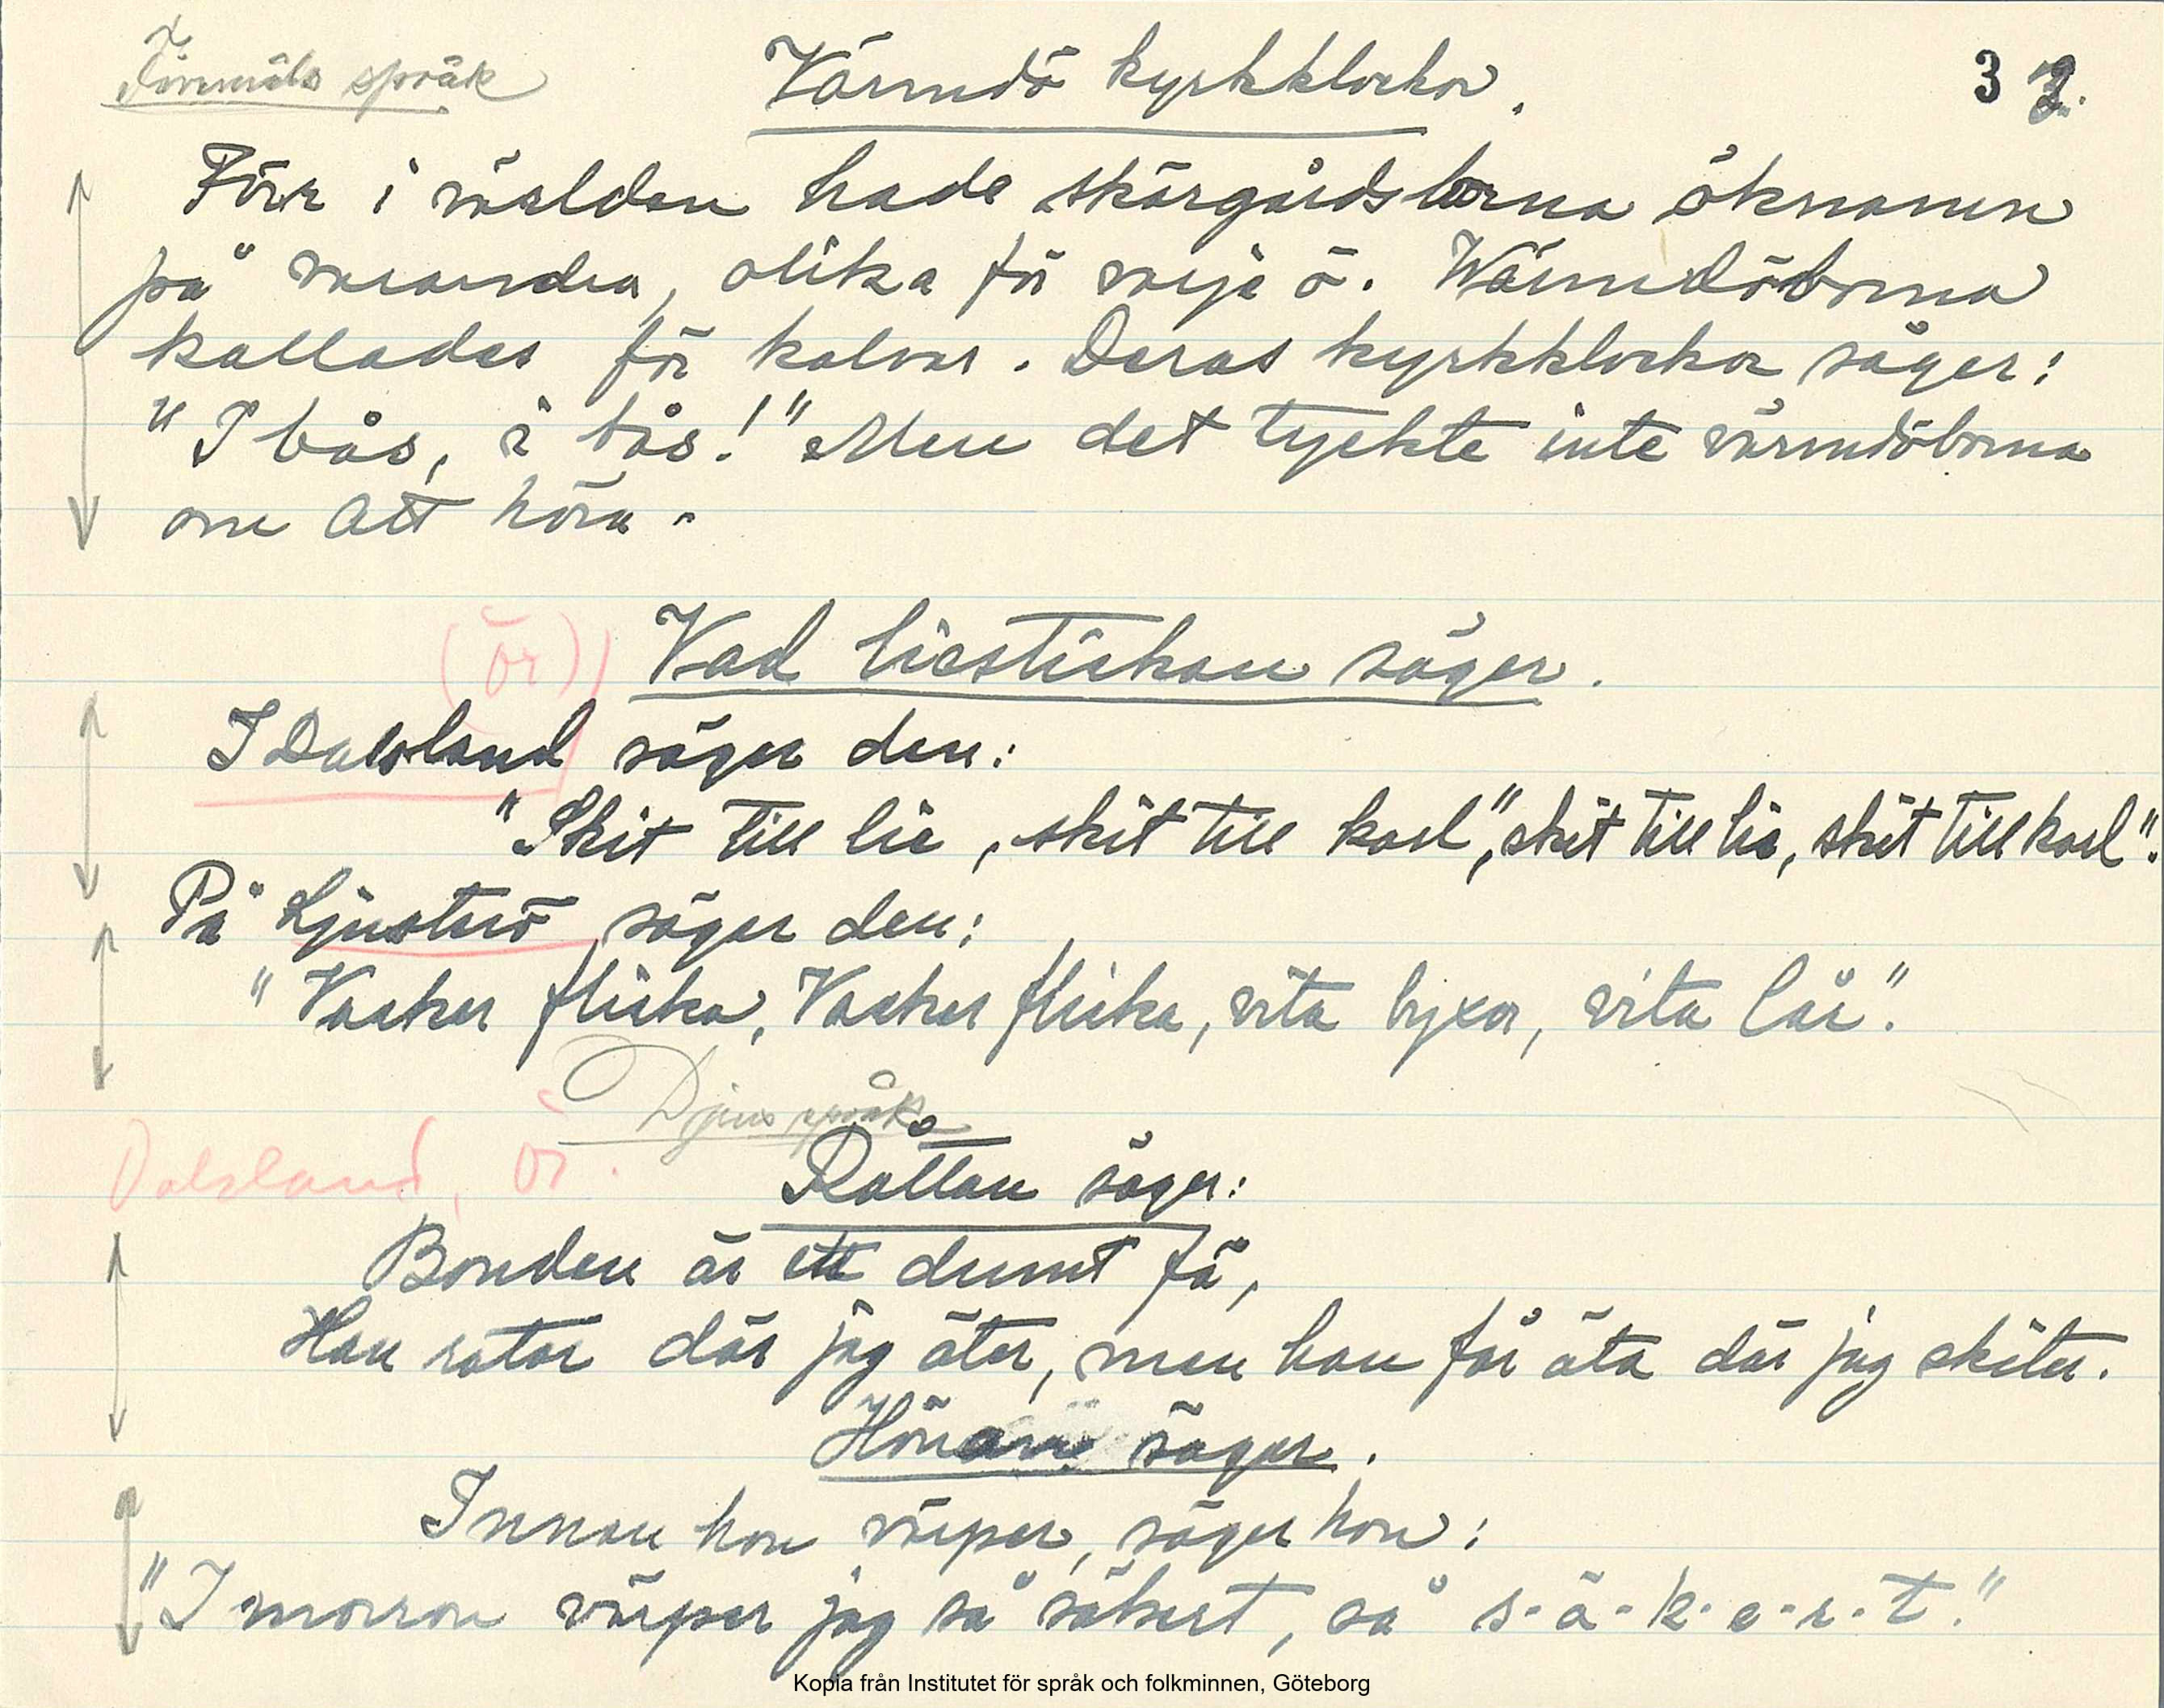 Föremåls språk
Värmdö kyrkklockor.
3 2.
Förr i världen hade skärgårdsborna öknamn
på varandra, olika för varje ö. Wärmdöborna
kallades för kalvar. Deras kyrkklockor säger:
"I bås, i bås!" Men det tyckte inte värmdöborna
om att höra.
(ör)
Vad liestickan säger.
I Dalsland säger den:
"Skit till lie, skit till karl", "skit till lie, skit till karl".
På Ljusterö säger den:
"Vacker flicka, Vacker flicka, vita byxor, vita lår".
Djurs språk
Dalsland, ör.
Råttan säger:
Bonden är ett dumt fä,
Han ratar där jag äter, men han får äta där jag skiter.
Hönan säger.
Innan hon värper, säger hon:
"I morron värper jag så säkert, så s-ä-k-e-r-t."
Kopia från Institutet för språk och folkminnen, Göteborg